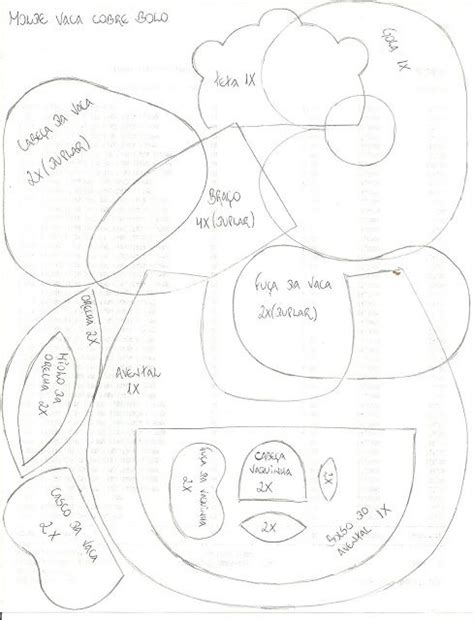 MOLDE VACA COBRE BOLO
TETA 1X
GOLA 1X
CABEÇA DA VACA
2X (DUPLAR)
BRAÇO
4X (DUPLAR)
FUÇA DA VACA
2X (DUPLAR)
ORELHA 2X
MIOLO DA
ORELHA 2X
AVENTAL
1X
FUÇA DA VAQUINHA
2X
CABEÇA
VAQUINHA
2X
2X
2X
BOLSO DO
AVENTAL 1X
CASCO DA VACA
2X